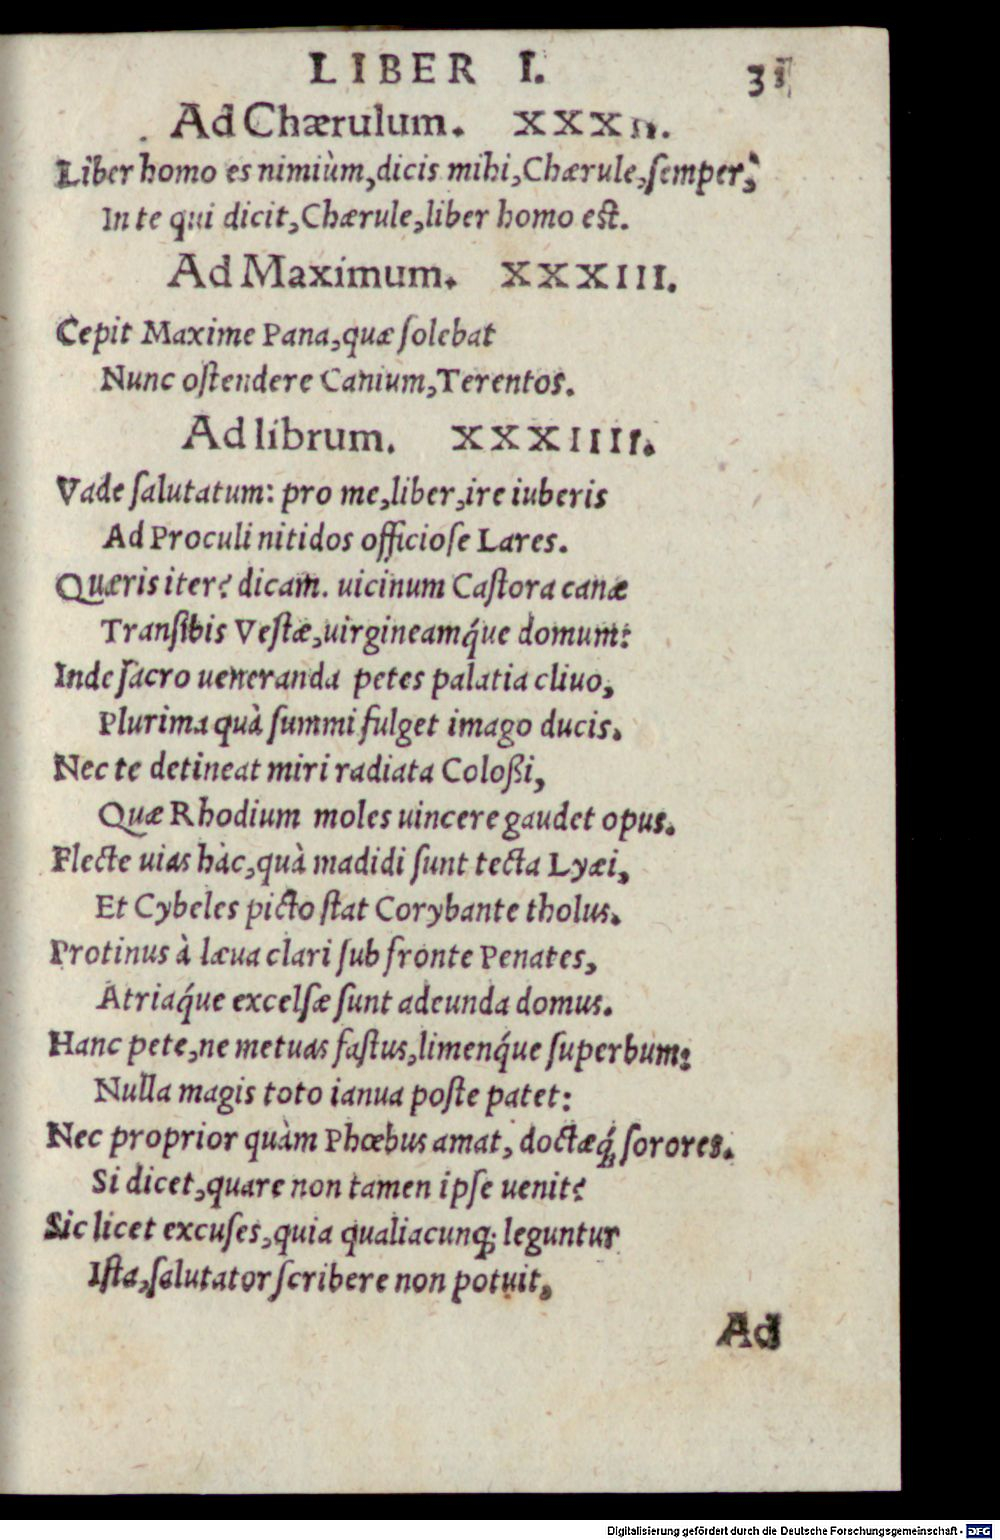 LIBER I. 31
Ad Chærulum. XXXII.
Liber homo es nimiùm, dicis mihi, Chærule, semper,
In te qui dicit, Chærule, liber homo est.
Ad Maximum. XXXIII.
Cepit Maxime Pana, quæ solebat
Nunc ostendere Canium, Terentos.
Ad librum. XXXIIII.
Vade salutatum: pro me, liber, ire iuberis
Ad Proculi nitidos officiose Lares.
Quæris iter? dicam. uicinum Castora canæ
Transibis Vestæ, uirgineamq́ue domum:
Inde sacro ueneranda petes palatia cliuo,
Plurima quà summi fulget imago ducis.
Nec te detineat miri radiata Coloßi,
Quæ Rhodium moles uincere gaudet opus.
Flecte uias hàc, quà madidi sunt tecta Lyæi,
Et Cybeles picto stat Corybante tholus.
Protinus à læua clari sub fronte Penates,
Atriaq́ue excelsæ sunt adeunda domus.
Hanc pete, ne metuas fastus, limenq́ue superbum:
Nulla magis toto ianua poste patet:
Nec proprior quàm Phœbus amat, doctæq́; sorores.
Si dicet, quare non tamen ipse uenit?
Sic licet excuses, quia qualiacunq; leguntur
Ista, salutator scribere non potuit,
Ad
Digitalisierung gefördert durch die Deutsche Forschungsgemeinschaft - DFG